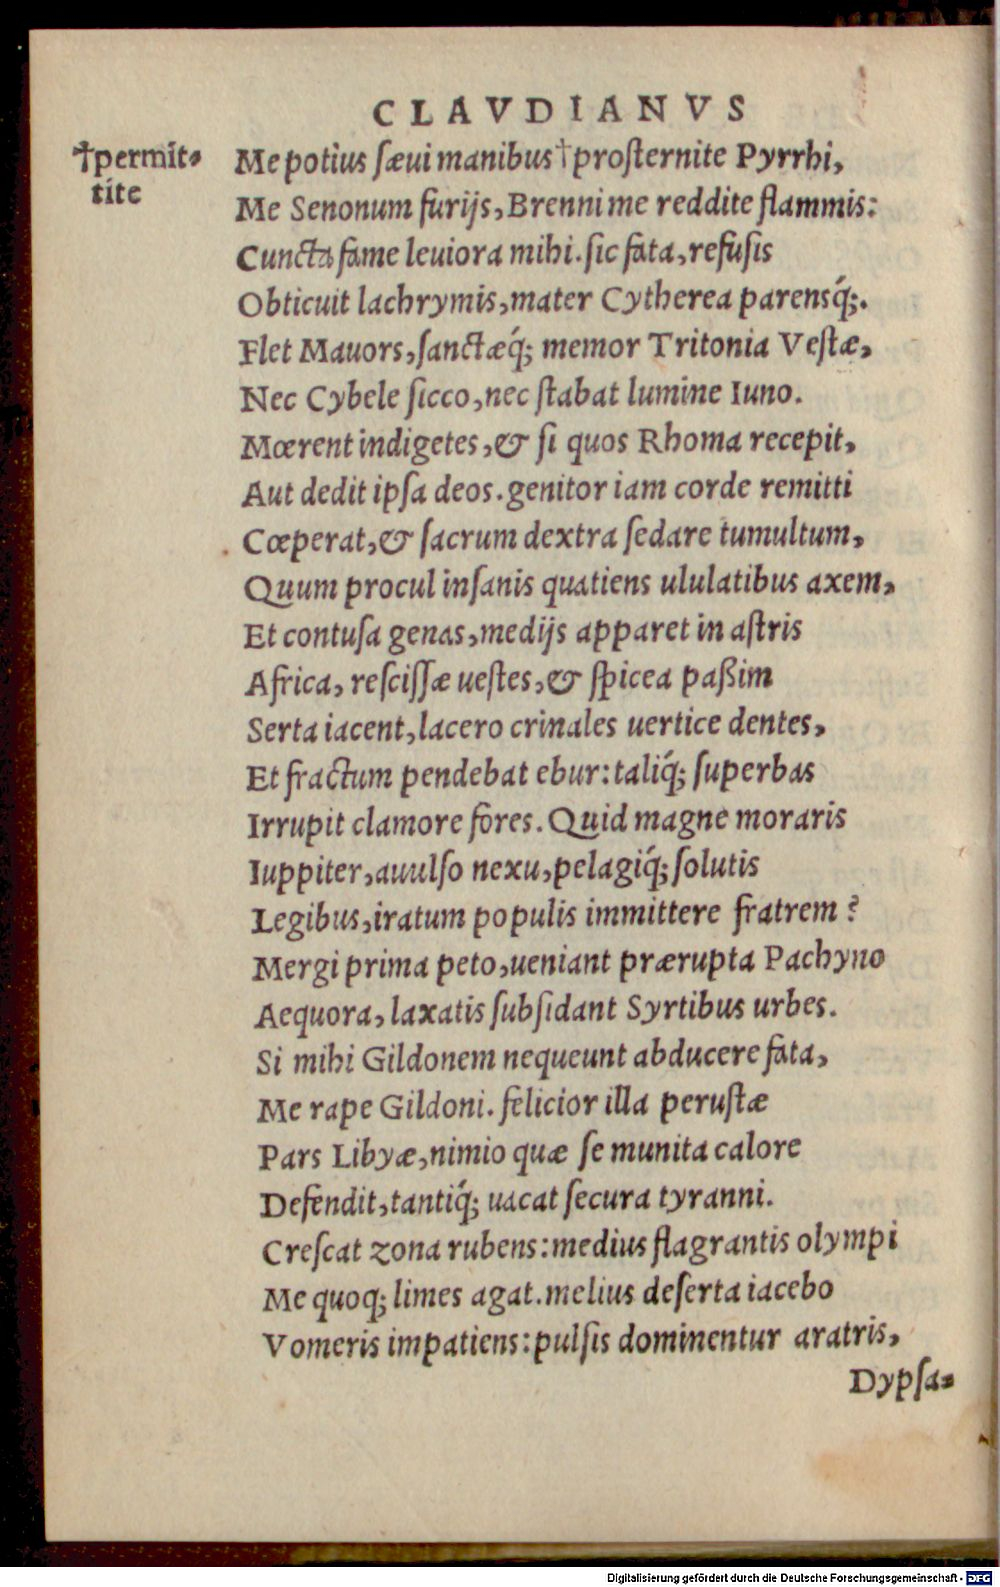 CLAVDIANVS
†permit-
tite
Me potius sæui manibus†prosternite Pyrrhi,
Me Senonum furijs, Brenni me reddite flammis:
Cuncta fame leuiora mihi. sic fata, refusis
Obticuit lachrymis, mater Cytherea parensq́;.
Flet Mauors, sanctæq́; memor Tritonia Vestæ,
Nec Cybele sicco, nec stabat lumine Iuno.
Mœrent indigetes, & si quos Rhoma recepit,
Aut dedit ipsa deos. genitor iam corde remitti
Cœperat, & sacrum dextra sedare tumultum,
Quum procul insanis quatiens ululatibus axem,
Et contusa genas, medijs apparet in astris
Africa, rescissæ uestes, & spicea paßim
Serta iacent, lacero crinales uertice dentes,
Et fractum pendebat ebur: taliq́; superbas
Irrupit clamore fores. Quid magne moraris
Iuppiter, auulso nexu, pelagiq́; solutis
Legibus, iratum populis immittere fratrem?
Mergi prima peto, ueniant prærupta Pachyno
Aequora, laxatis subsidant Syrtibus urbes.
Si mihi Gildonem nequeunt abducere fata,
Me rape Gildoni. felicior illa perustæ
Pars Libyæ, nimio quæ se munita calore
Defendit, tantiq́; uacat secura tyranni.
Crescat zona rubens: medius flagrantis olympi
Me quoq; limes agat. melius deserta iacebo
Vomeris impatiens: pulsis dominentur aratris,
Dypsa-
Digitalisierung gefördert durch die Deutsche Forschungsgemeinschaft - DFG